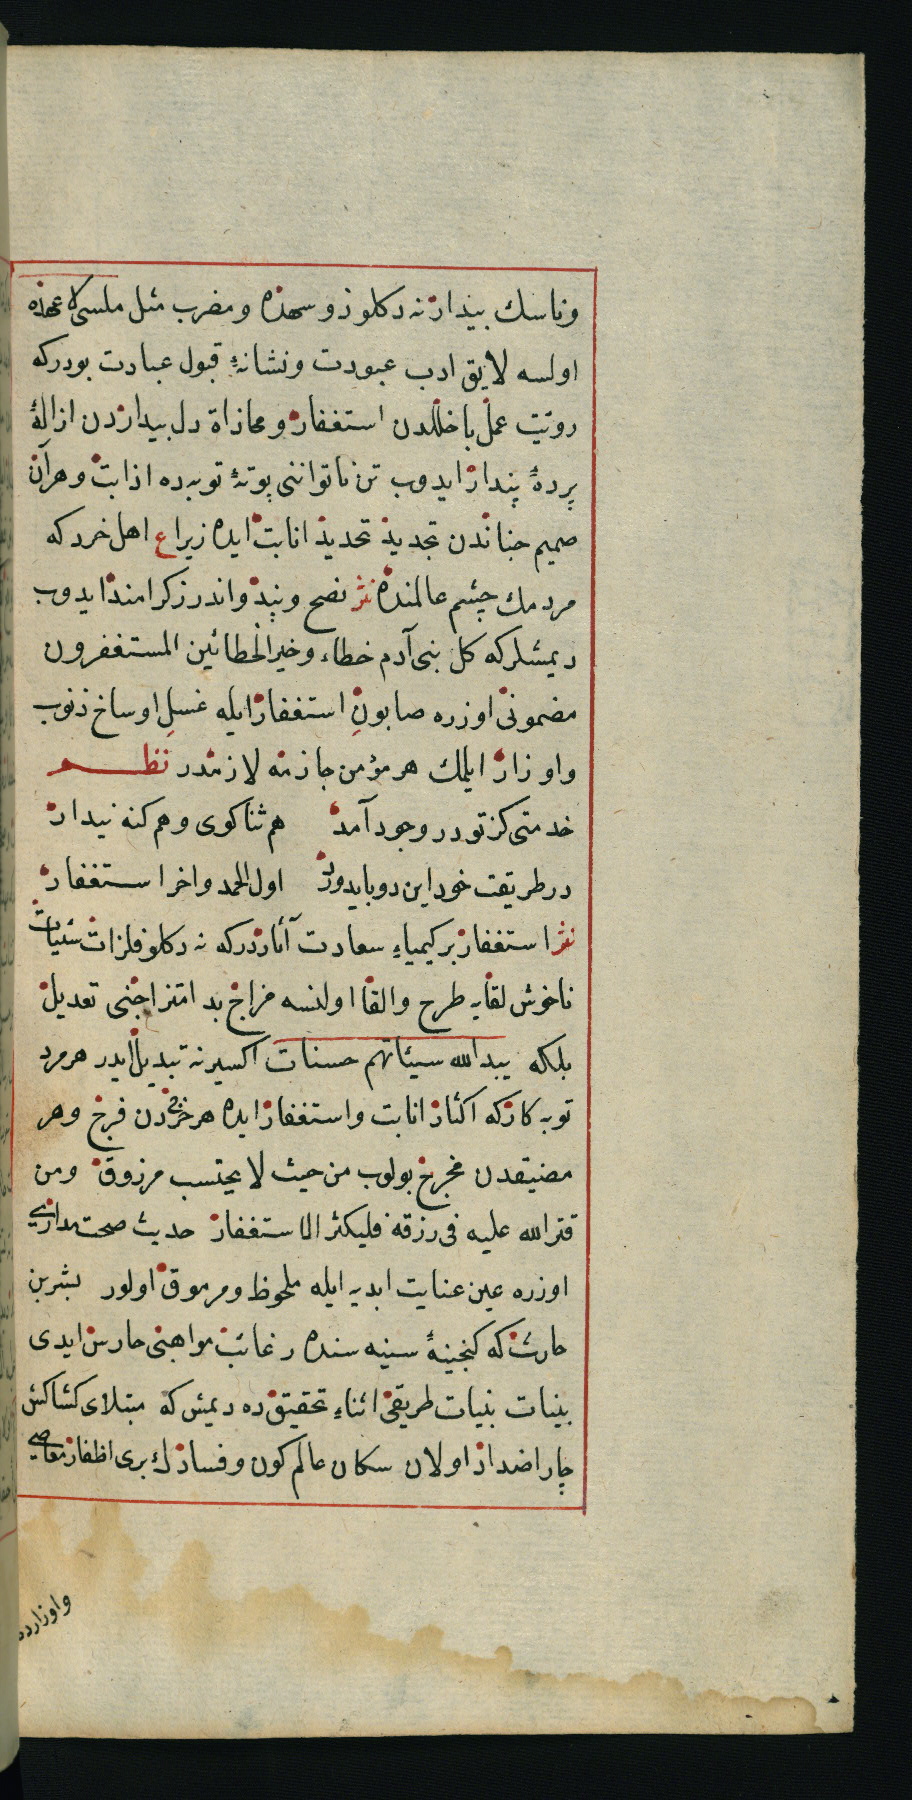 وناسك بيدار نه دكلو ذو سهذه ومضرب مثل ملسى كاعهذه
اولسه لايق ادب عبودت ونشانهٔ قبول عبادت بودركه
رؤيت عمل باخللدن استغفار ومحازاة دل بيداردن ازالهٔ
پردهٔ پندار ايدوب تن ناتواننى پوتهٔ توبه ده اذابت وهرآن
صميم جناندن تجديذ تحديذ انابت ايده زيرا ع اهل خرد كه
مردمك چشم عالمنده نثر نصح وپند واندرز كرامند ايدوب
ديمشلركه كل بنى آدم خطاء وخير الخطائين المستغفرون
مضمونى اوزره صابون استغفار ايله غسل اوساخ ذنوب
واوزار ايلمك هر مؤمن جازمه لازمدر نظم
خدمتى كز تو در وجود آمد هم ثنا كوى وهم كنه نيدار
در طريقت خود اين دو بايد ورد اول الحمد واخر استغفار
نثر استغفار بركيمياء سعادت آثاردركه نه دكلو فلزات سيئات
ناخوش لقايه طرح والقا اولنسه مزاج بد امتزاجنى تعديل
بلكه يبدالله سيئاتهم حسنات اكسيرنه تبديل ايدر هر مرد
توبه كاركه اكثار انابت واستغفار ايده هر حرجدن فرج وهر
مضيقدن مخرج بولوب من حيث لا يحتسب مرزوق ومن
قتر الله عليه فى رزقه فليكثر الاستغفار حديث صحت مدارى
اوزره عين عنايت ابديه ايله ملحوظ ومرموق اولور بشر بن
حارث كه كنجينهٔ سنيه سنده رغائب مواهبنى حارس ايدى
بينات بنيات طريقى اثناء تحقيق ده ديمش كه مبتلاى كشاكش
چار اضداد اولان سكان عالم كون وفسادك برى اظفار معاصى
واوزارده